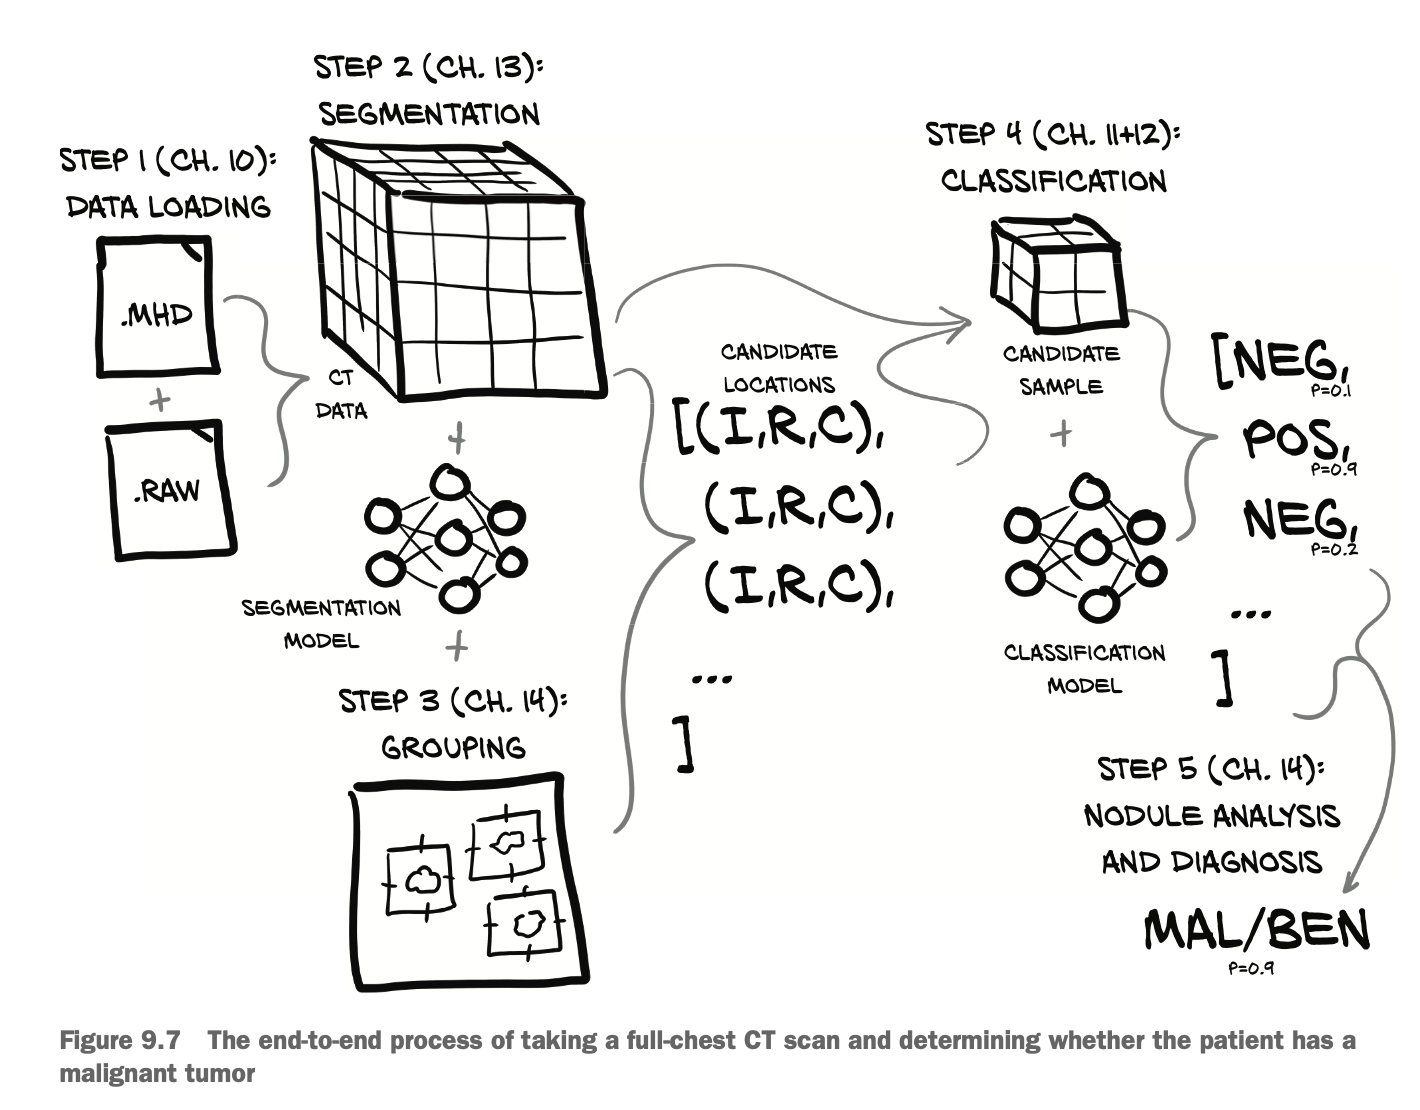 STEP 1 (CH. 10):
DATA LOADING
.MHD
+
.RAW
STEP 2 (CH. 13):
SEGMENTATION
CT
DATA
+
SEGMENTATION
MODEL
+
STEP 3 (CH. 14):
GROUPING
CANDIDATE
LOCATIONS
[(I,R,C),
(I,R,C),
(I,R,C),
...
]
STEP 4 (CH. 11+12):
CLASSIFICATION
CANDIDATE
SAMPLE
+
CLASSIFICATION
MODEL
[NEG,
P=0.1
POS,
P=0.9
NEG,
P=0.2
...
]
STEP 5 (CH. 14):
NODULE ANALYSIS
AND DIAGNOSIS
MAL/BEN
P=0.9
Figure 9.7 The end-to-end process of taking a full-chest CT scan and determining whether the patient has a
malignant tumor